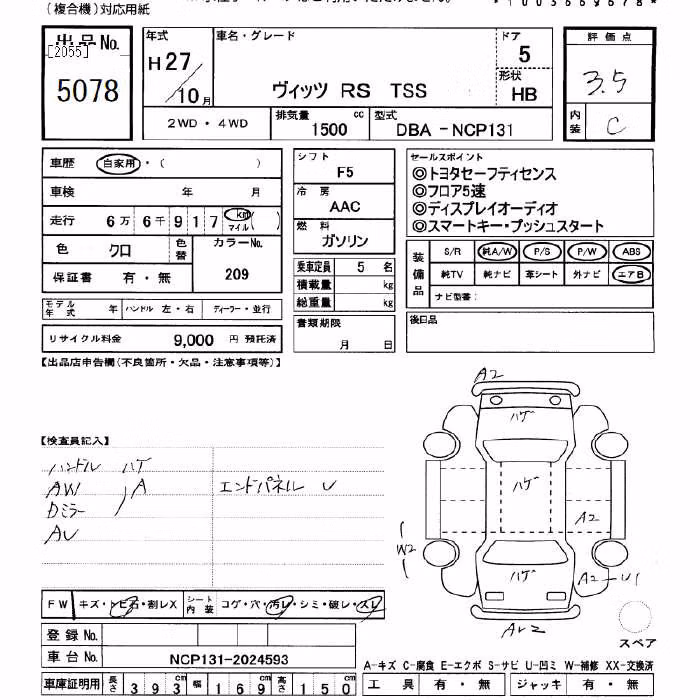 (複合機)対応用紙
*1003669678*
出品No.
[2055]
5078
年式
H27
/10月
車名・グレード
ヴィッツ RS TSS
ドア
5
形状
HB
評価点
3.5
内装
C
2WD・4WD
排気量
1500 cc
型式
DBA-NCP131
車歴
自家用・( )
車検 年 月
走行 6万6千917 km マイル ( )
色 クロ
色替
カラーNo.
209
保証書 有・無
モデル年式 年
ハンドル 左・右
ディーラー・並行
リサイクル料金 9,000 円 預託済
シフト F5
冷房 AAC
燃料 ガソリン
乗車定員 5 名
積載量 kg
総重量 kg
書類期限
月 日
セールスポイント
◎トヨタセーフティセンス
◎フロア5速
◎ディスプレイオーディオ
◎スマートキー・プッシュスタート
装備品
S/R 純A/W P/S P/W ABS
純TV 純ナビ 革シート 外ナビ エアB
ナビ型番:
後日品
【出品店申告欄(不良箇所・欠品・注意事項等)】
【検査員記入】
ハンドル ハゲ
AW
Dミラー
A
AU
エンドパネル U
A2
ハゲ
ハゲ
A2
W2
ハゲ
A2-U1
スペア
FW キズ・トビ石・割レX
シート内装 コゲ・穴・汚レ・シミ・破レ・スレ
登録No.
車台No. NCP131-2024593
車庫証明用 長さ 393 cm 幅 169 cm 高さ 150 cm
A-キズ C-腐食 E-エクボ S-サビ U-凹ミ W-補修 XX-交換済
工具 有・無 ジャッキ 有・無